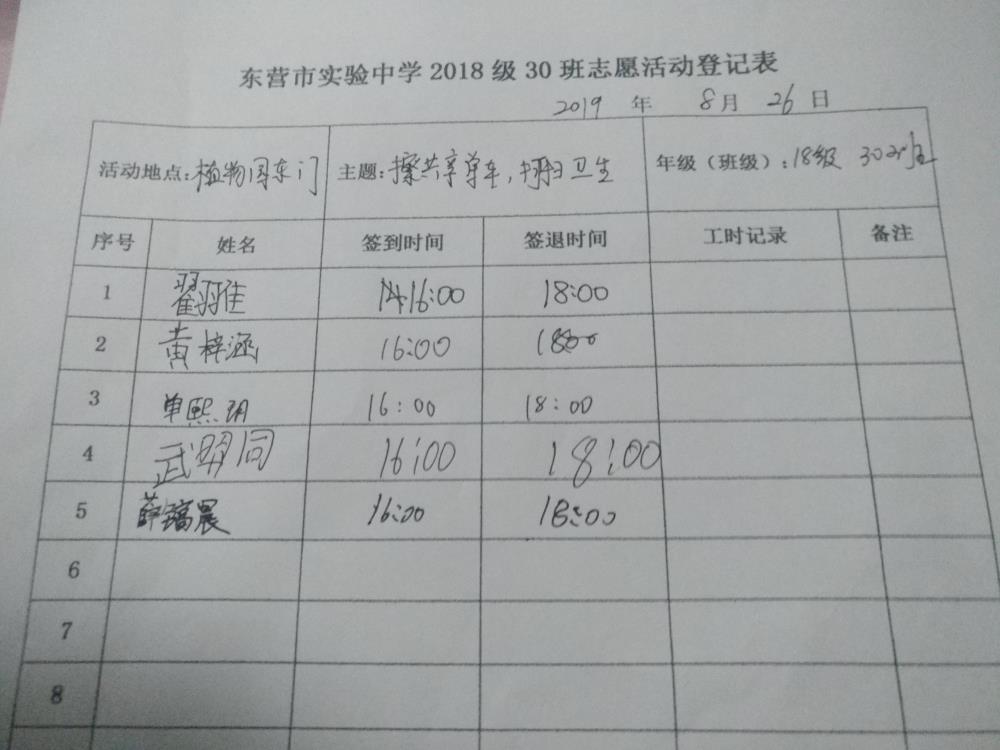 东营市实验中学 2018 级 30 班志愿活动登记表
2019 年 8月 26 日
活动地点:植物园东门 主题:擦共享单车,打扫卫生 年级(班级):18级 30班
序号 姓名 签到时间 签退时间 工时记录 备注
1 翟羽佳 16:00 18:00
2 黄梓涵 16:00 18:00
3 单熙玥 16:00 18:00
4 武 同 16:00 18:00
5 薛 晨 16:00 18:00
6
7
8